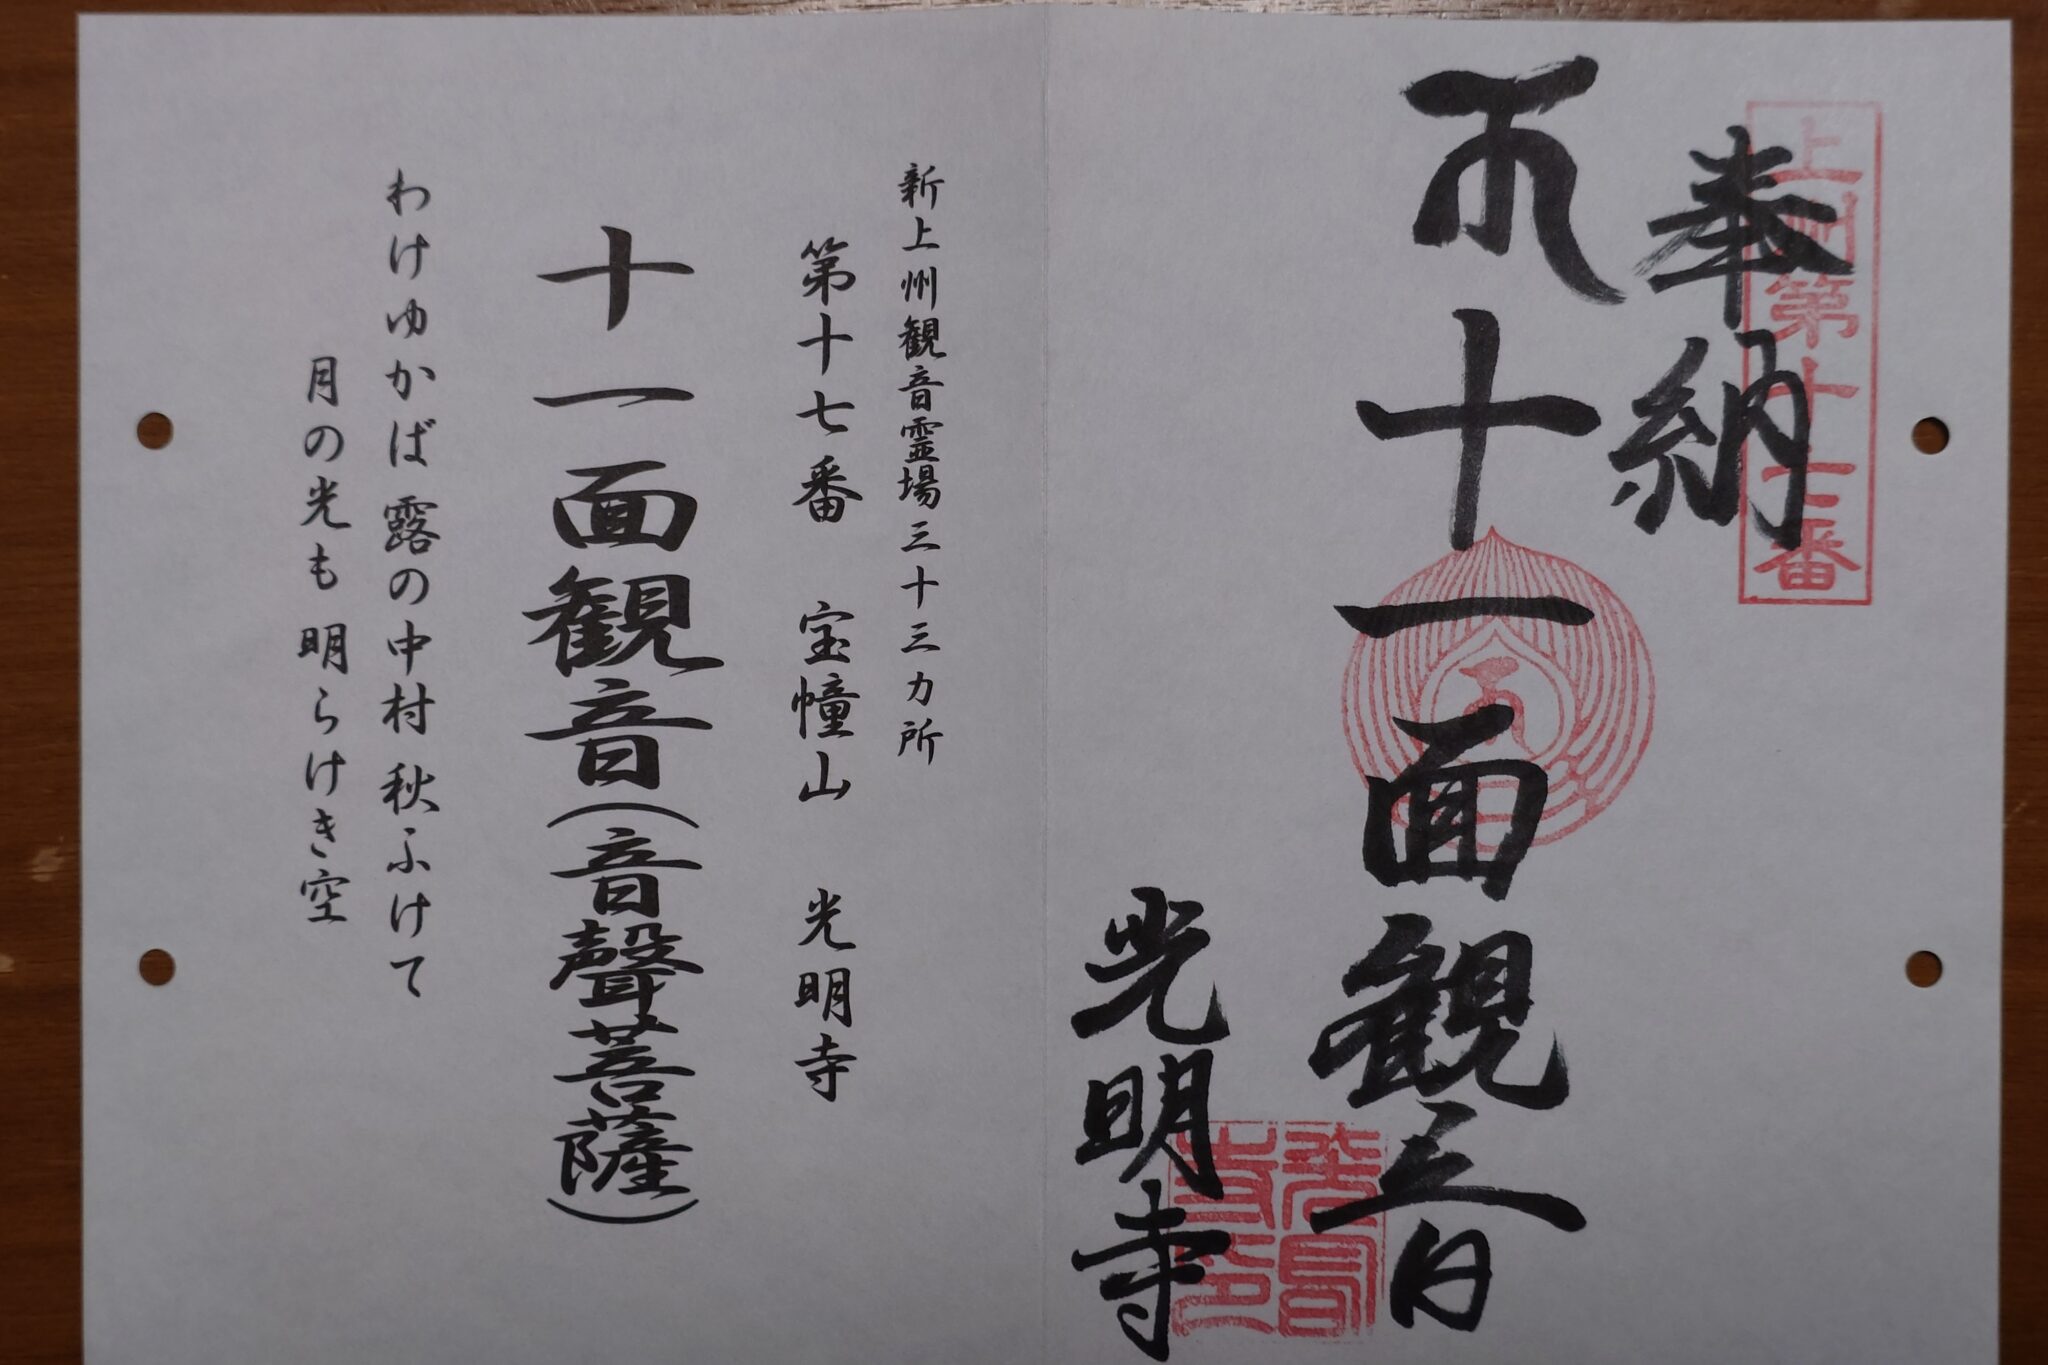 上州第十七番
奉納
十一面観音
光明寺
光明寺印
新上州観音霊場三十三カ所
第十七番 宝幢山 光明寺
十一面観音(音聲菩薩)
わけゆかば 露の中村 秋ふけて
月の光も 明らけき空